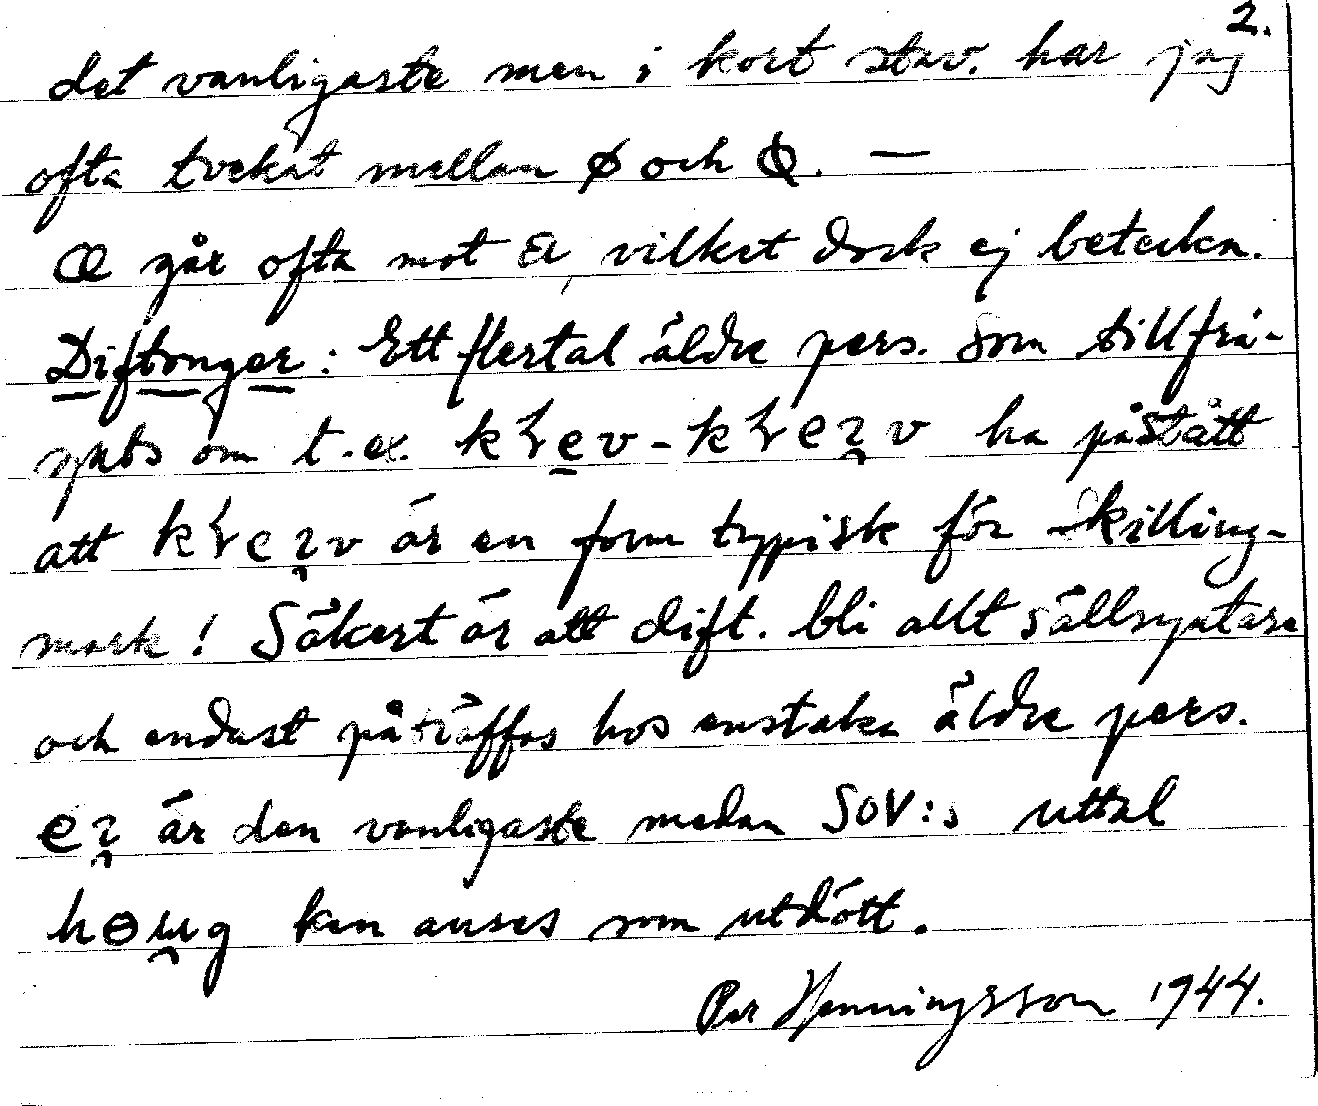 2.
det vanligaste men i kort stav. har jag
ofta tvekat mellan ø och .–
œ går ofta mot , vilket dock ej beteckn.
Diftonger: Ett flertal äldre pers. som tillfrå-
gats om t.ex. kɽev - kɽeʅ̯v ha påstått
att är en form typisk för Killing-
mark! Säkert är att dift. bli allt sällsyntare
och endast påträffas hos enstaka äldre pers.
är den vanligaste medan SOV:s uttal
hɵu̯g kan anses som utdött.
Per Henningsson 1944.